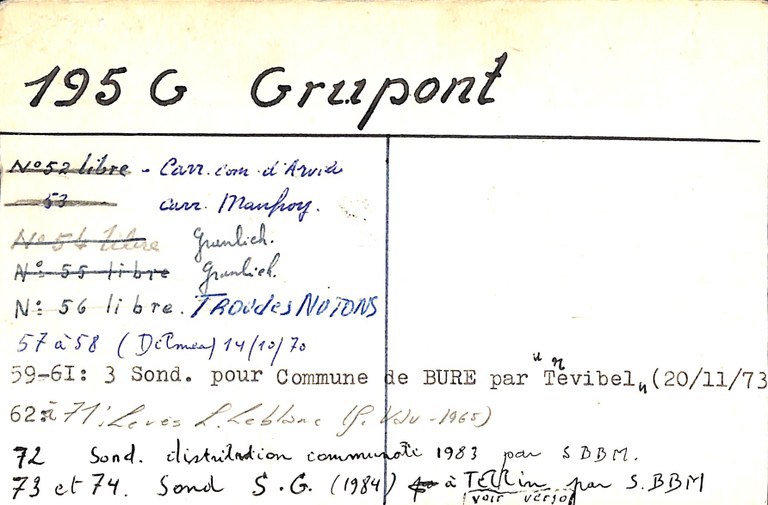 195 G Grupont
N°52 libre - Carr. com. d'Arville
53 carr. Maufroy.
N°54 libre Graulich.
N° 55 libre Graulich.
N: 56 libre. TROU des NUTONS
57 à 58 (Delmer) 14/10/70
59-6I: 3 Sond. pour Commune de BURE par "Tevibel" (20/11/73
62 à 71: Levés L. Leblanc (-1965)
72 Sond. distribution communale 1983 par S BBM.
73 et 74. Sond S.G. (1984) à Tellin par S.BBM
(voir verso)